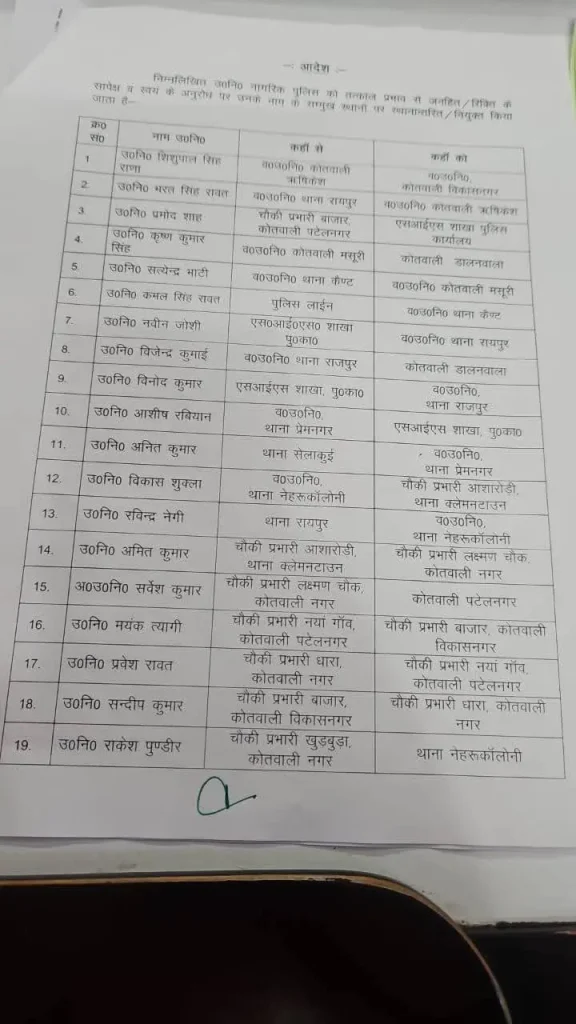 -: आदेश :-
निम्नलिखित उ0नि0 नागरिक पुलिस को तत्काल प्रभाव से जनहित/रिक्ति के
सापेक्ष व स्वयं के अनुरोध पर उनके नाम के सम्मुख स्थानों पर स्थानान्तरित/नियुक्त किया
जाता है-
क्र0 सं0 नाम उ0नि0 कहाँ से कहाँ को
1. उ0नि0 शिशुपाल सिंह राणा व0उ0नि0 कोतवाली ऋषिकेश व0उ0नि0, कोतवाली विकासनगर
2. उ0नि0 भरत सिंह रावत व0उ0नि0 थाना रायपुर व0उ0नि0 कोतवाली ऋषिकेश
3. उ0नि0 प्रमोद शाह चौकी प्रभारी बाजार, कोतवाली पटेलनगर एसआईएस शाखा पुलिस कार्यालय
4. उ0नि0 कृष्ण कुमार सिंह व0उ0नि0 कोतवाली मसूरी कोतवाली डालनवाला
5. उ0नि0 सत्येन्द्र भाटी व0उ0नि0 थाना कैण्ट व0उ0नि0 कोतवाली मसूरी
6. उ0नि0 कमल सिंह रावत पुलिस लाईन व0उ0नि0 थाना कैण्ट
7. उ0नि0 नवीन जोशी एस0आई0एस0 शाखा पु0का0 व0उ0नि0 थाना रायपुर
8. उ0नि0 विजेन्द्र कुमाई व0उ0नि0 थाना राजपुर कोतवाली डालनवाला
9. उ0नि0 विनोद कुमार एसआईएस शाखा, पु0का0 व0उ0नि0, थाना राजपुर
10. उ0नि0 आशीष रबियान व0उ0नि0, थाना प्रेमनगर एसआईएस शाखा, पु0का0
11. उ0नि0 अनित कुमार थाना सेलाकुई व0उ0नि0, थाना प्रेमनगर
12. उ0नि0 विकास शुक्ला व0उ0नि0, थाना नेहरूकॉलोनी चौकी प्रभारी आशारोड़ी, थाना क्लेमनटाउन
13. उ0नि0 रविन्द्र नेगी थाना रायपुर व0उ0नि0, थाना नेहरूकॉलोनी
14. उ0नि0 अमित कुमार चौकी प्रभारी आशारोडी, थाना क्लेमनटाउन चौकी प्रभारी लक्ष्मण चौक, कोतवाली नगर
15. अ0उ0नि0 सर्वेश कुमार चौकी प्रभारी लक्ष्मण चौक, कोतवाली नगर कोतवाली पटेलनगर
16. उ0नि0 मयंक त्यागी चौकी प्रभारी नयां गॉंव, कोतवाली पटेलनगर चौकी प्रभारी बाजार, कोतवाली विकासनगर
17. उ0नि0 प्रवेश रावत चौकी प्रभारी धारा, कोतवाली नगर चौकी प्रभारी नयां गॉंव, कोतवाली पटेलनगर
18. उ0नि0 सन्दीप कुमार चौकी प्रभारी बाजार, कोतवाली विकासनगर चौकी प्रभारी धारा, कोतवाली नगर
19. उ0नि0 राकेश पुण्डीर चौकी प्रभारी खुड़बुड़ा, कोतवाली नगर थाना नेहरूकॉलोनी